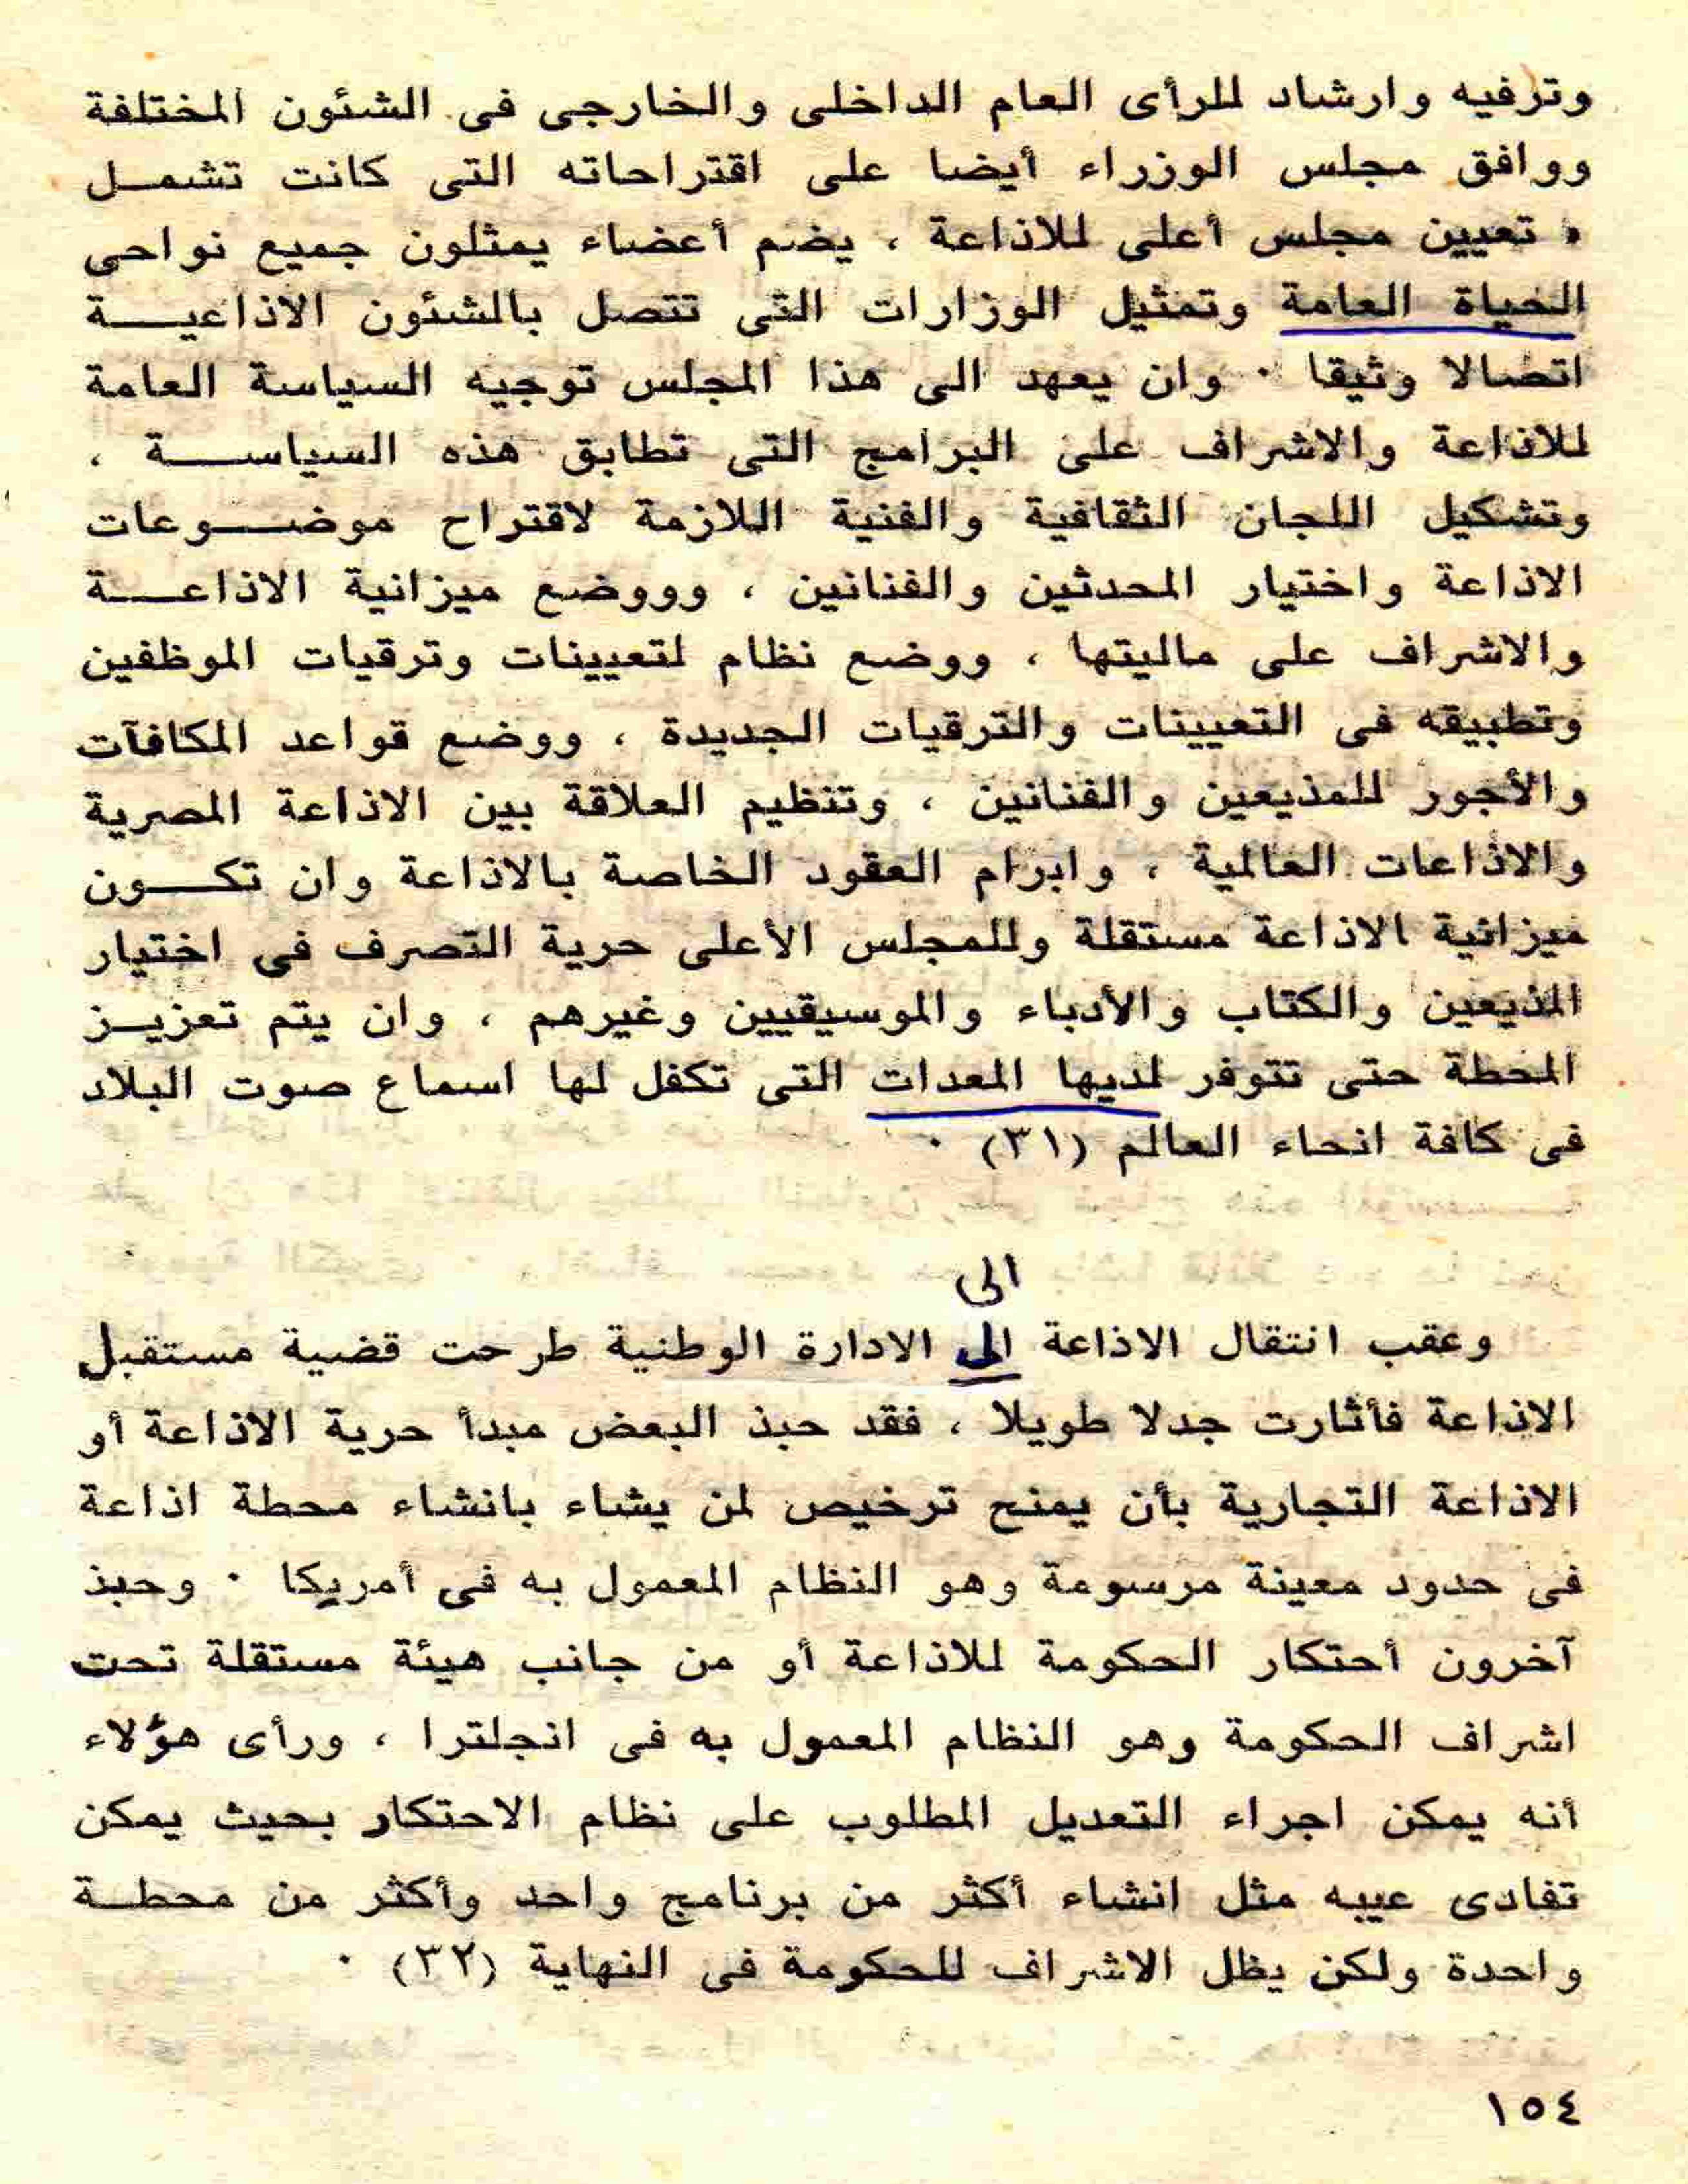 وترفيه وارشاد للرأى العام الداخلى والخارجى فى الشئون المختلفة
ووافق مجلس الوزراء أيضا على اقتراحاته التى كانت تشمل
« تعيين مجلس أعلى للاذاعة ، يضم أعضاء يمثلون جميع نواحى
الحياة العامة وتمثيل الوزارات التى تتصل بالشئون الاذاعية
اتصالا وثيقا ٠ وان يعهد الى هذا المجلس توجيه السياسة العامة
للاذاعة والاشراف على البرامج التى تطابق هذه السياسة ،
وتشكيل اللجان الثقافية والفنية اللازمة لاقتراح موضوعات
الاذاعة واختيار المحدثين والفنانين ، وووضع ميزانية الاذاعة
والاشراف على ماليتها ، ووضع نظام لتعيينات وترقيات الموظفين
وتطبيقه فى التعيينات والترقيات الجديدة ، ووضع قواعد المكافآت
والأجور للمذيعين والفنانين ، وتنظيم العلاقة بين الاذاعة المصرية
والاذاعات العالمية ، وابرام العقود الخاصة بالاذاعة وان تكون
ميزانية الاذاعة مستقلة وللمجلس الأعلى حرية التصرف فى اختيار
المذيعين والكتاب والأدباء والموسيقيين وغيرهم ، وان يتم تعزيز
المحطة حتى تتوفر لديها المعدات التى تكفل لها اسماع صوت البلاد
فى كافة انحاء العالم (٣١) ٠
الى
وعقب انتقال الاذاعة الى الادارة الوطنية طرحت قضية مستقبل
الاذاعة فأثارت جدلا طويلا ، فقد حبذ البعض مبدأ حرية الاذاعة أو
الاذاعة التجارية بأن يمنح ترخيص لمن يشاء بانشاء محطة اذاعة
فى حدود معينة مرسومة وهو النظام المعمول به فى أمريكا ٠ وحبذ
آخرون أحتكار الحكومة للاذاعة أو من جانب هيئة مستقلة تحت
اشراف الحكومة وهو النظام المعمول به فى انجلترا ، ورأى هؤلاء
أنه يمكن اجراء التعديل المطلوب على نظام الاحتكار بحيث يمكن
تفادى عيبه مثل انشاء أكثر من برنامج واحد وأكثر من محطة
واحدة ولكن يظل الاشراف للحكومة فى النهاية (٣٢) ٠
١٥٤